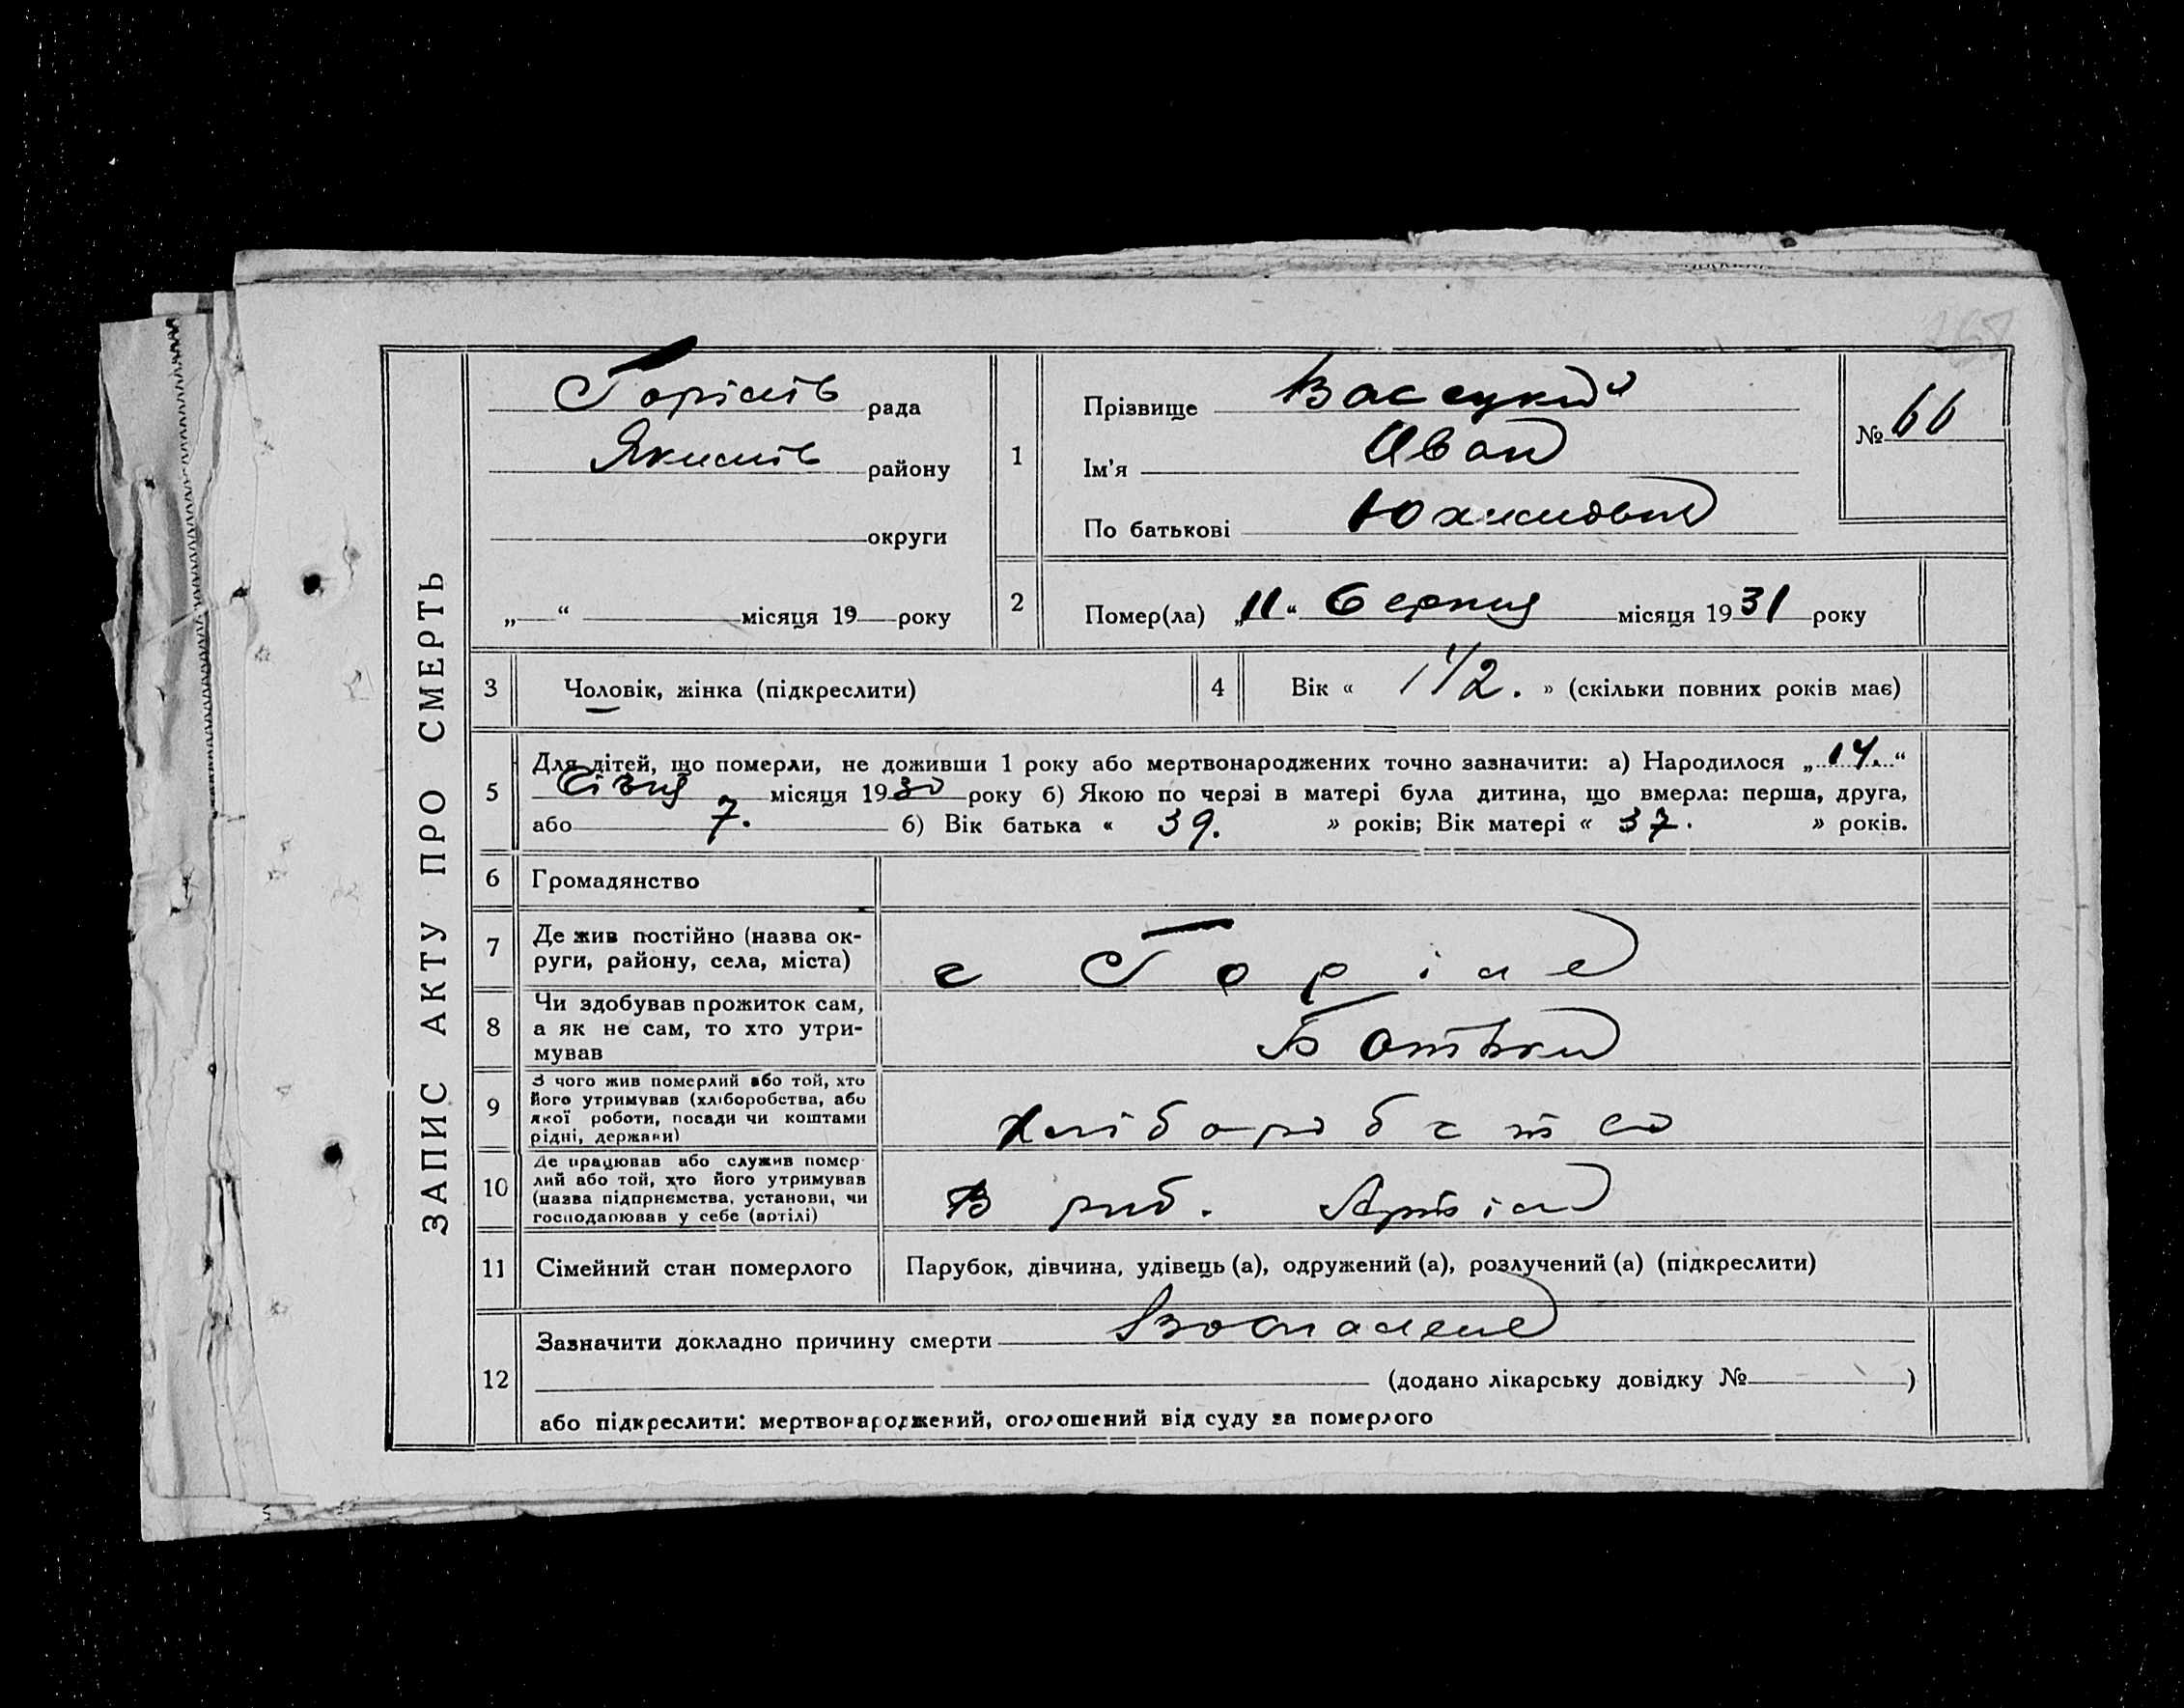 ЗАПИС АКТУ ПРО СМЕРТЬ
Горіслів рада
Якимів району
округи
„ “ місяця 19 року
1
Прізвище Васецкий
Ім'я Иван
По батькові Юхимович
№ 66
2
Помер(ла) „11“ Серпня місяця 1931 року
3
Чоловік, жінка (підкреслити)
4
Вік « 1 1/2. » (скільки повних років має)
5
Для дітей, що померли, не доживши 1 року або мертвонароджених точно зазначити: а) Народилося „14.“
Січня місяця 1930 року б) Якою по черзі в матері була дитина, що вмерла: перша, друга,
або 7. б) Вік батька « 39. » років; Вік матері « 37. » років.
6
Громадянство
7
Де жив постійно (назва ок-
руги, району, села, міста)
с
8
Чи здобував прожиток сам,
а як не сам, то хто утри-
мував
Батьки
9
З чого жив померлий або той, хто
його утримував (хліборобства, або
якої роботи, посади чи коштами
рідні, держави)
хліборобство
10
Де працював або служив помер-
лий або той, хто його утримував
(назва підприємства, установи, чи
господарював у себе (артілі)
В риб. Артіл
11
Сімейний стан померлого
Парубок, дівчина, удівець (а), одружений (а), розлучений (а) (підкреслити)
12
Зазначити докладно причину смерти Воспаление
(додано лікарську довідку № )
або підкреслити: мертвонароджений, оголошений від суду за померлого